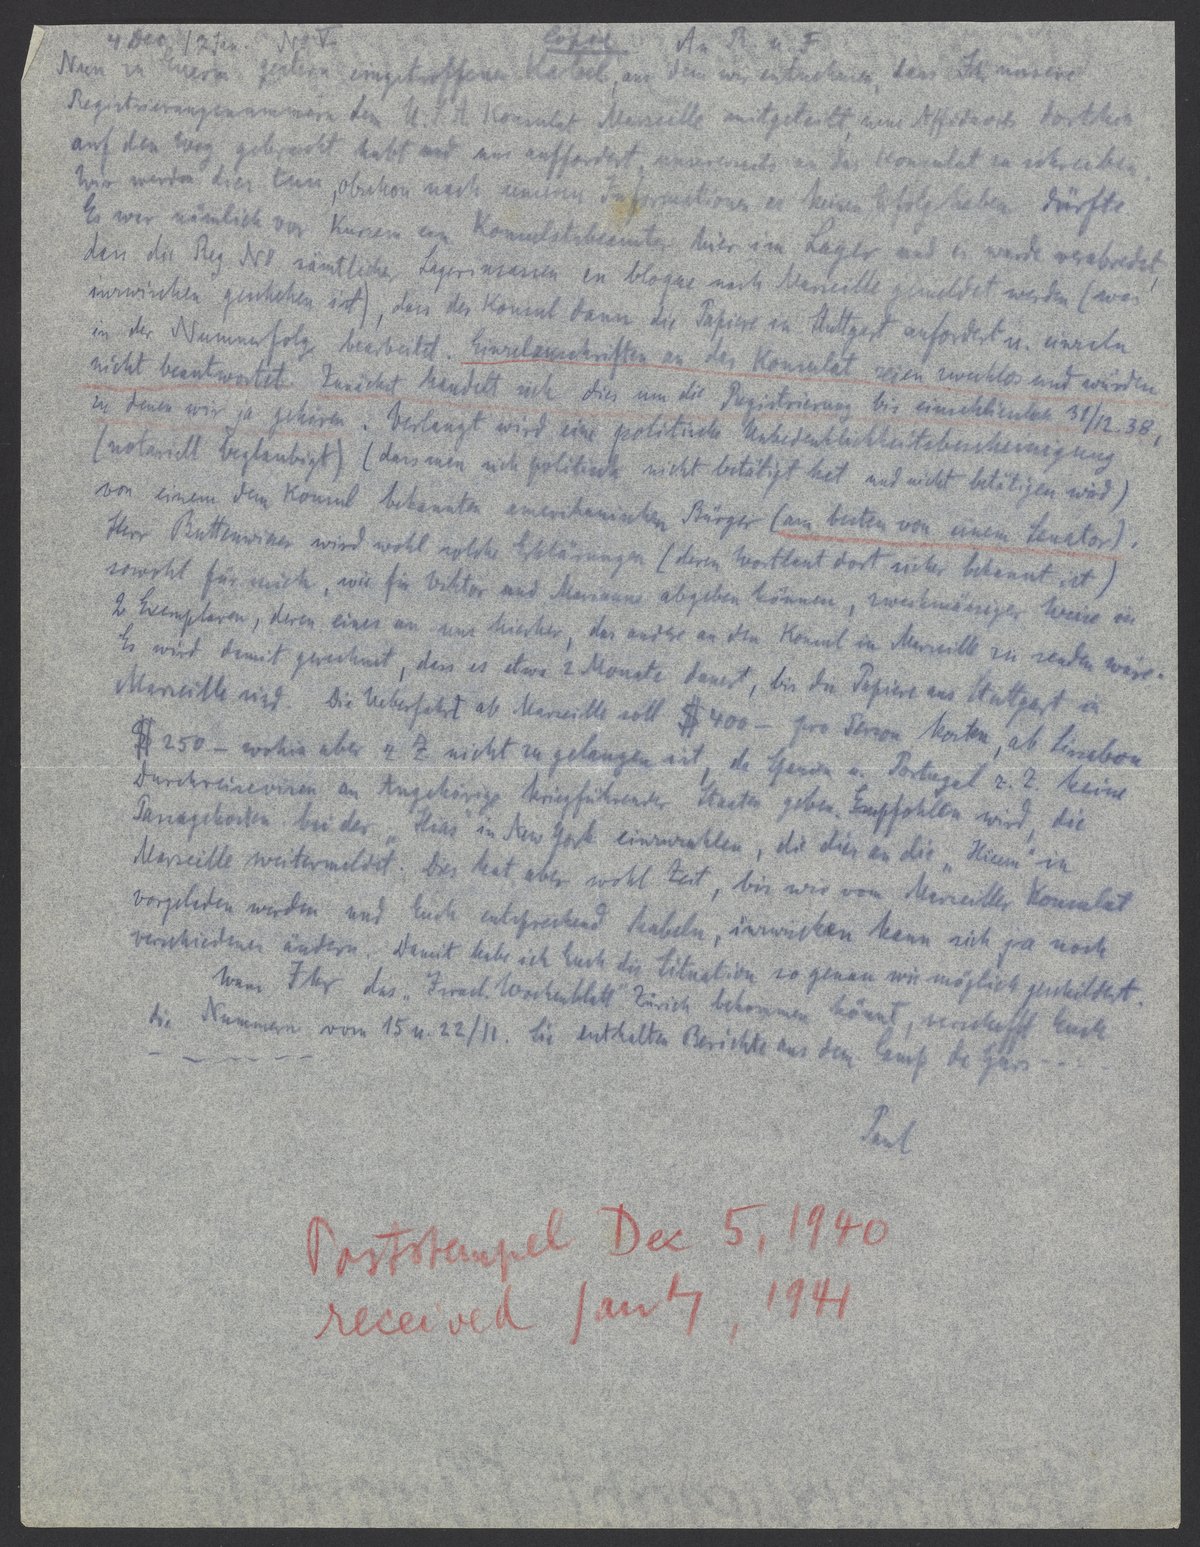 4 Dec. No V. Copie An R u. F
Nun zu Euerm gestern eingetroffenen Kabel, aus dem wir entnehmen, dass Ihr unsere
Registrierungsnummern dem U.S.A Konsulat Marseille mitgeteilt, neue Affidavits dorthin
auf den Weg gebracht habt und uns auffordert, unsererseits an das Konsulat zu schreiben.
Wir werden dies tun, obschon nach unseren Informationen es keinen Erfolg haben dürfte.
Es war nämlich vor Kurzem ein Konsulatsbeamter hier im Lager und es wurde verabredet,
dass die Reg. No sämtlicher Lagerinsassen en bloque nach Marseille gemeldet werden (was
inzwischen geschehen ist), dass der Konsul dann die Papiere in Stuttgart anfordert u. einzeln
in der Nummerfolge bearbeitet. Einzelanschriften an das Konsulat seien zwecklos und würden
nicht beantwortet. Zunächst handelt sich dies um die Registrierung bis einschliesslich 31/12.38,
zu denen wir ja gehören. Verlangt wird eine politische Unbedenklichkeitsbescheinigung
(notariell beglaubigt) (dass man sich politisch nicht betätigt hat und nicht betätigen wird)
von einem dem Konsul bekannten amerikanischen Bürger (am besten von einem Senator).
Herr Buttenwieser wird wohl solche Erklärungen (deren Wortlaut dort sicher bekannt ist)
sowohl für mich, wie für Viktor und Marianne abgeben können, zweckmässiger Weise in
2 Exemplaren, deren eines an uns hierher, das andere an den Konsul in Marseille zu senden wäre.
Es wird damit gerechnet, dass es etwa 2 Monate dauert, bis die Papiere aus Stuttgart in
Marseille sind. Die Ueberfahrt ab Marseille soll $ 400 – pro Person kosten, ab Lissabon
$ 250 – wohin aber z Z nicht zu gelangen ist, da Spanien u. Portugal z. Z. keine
Durchreisevisen an Angehörige kriegführender Staaten geben. Empfohlen wird, die
Passagekosten bei der „Hias" in New York einzuzahlen, die dies an die „Hicem" in
Marseille weitermeldet. Dies hat aber wohl Zeit, bis wir vom Marseiller Konsulat
vorgeladen werden und Euch entsprechend kabeln, inzwischen kann sich ja noch
verschiedenes ändern. Damit habe ich Euch die Situation so genau wie möglich geschildert.
Wenn Ihr das „Israel. Wochenblatt" Zürich bekommen könnt, verschafft Euch
die Nummern vom 15 u. 22/11. Sie enthalten Berichte aus dem Camp de Gurs - - -
Paul
Poststempel Dec 5, 1940
received Jan 4, 1941